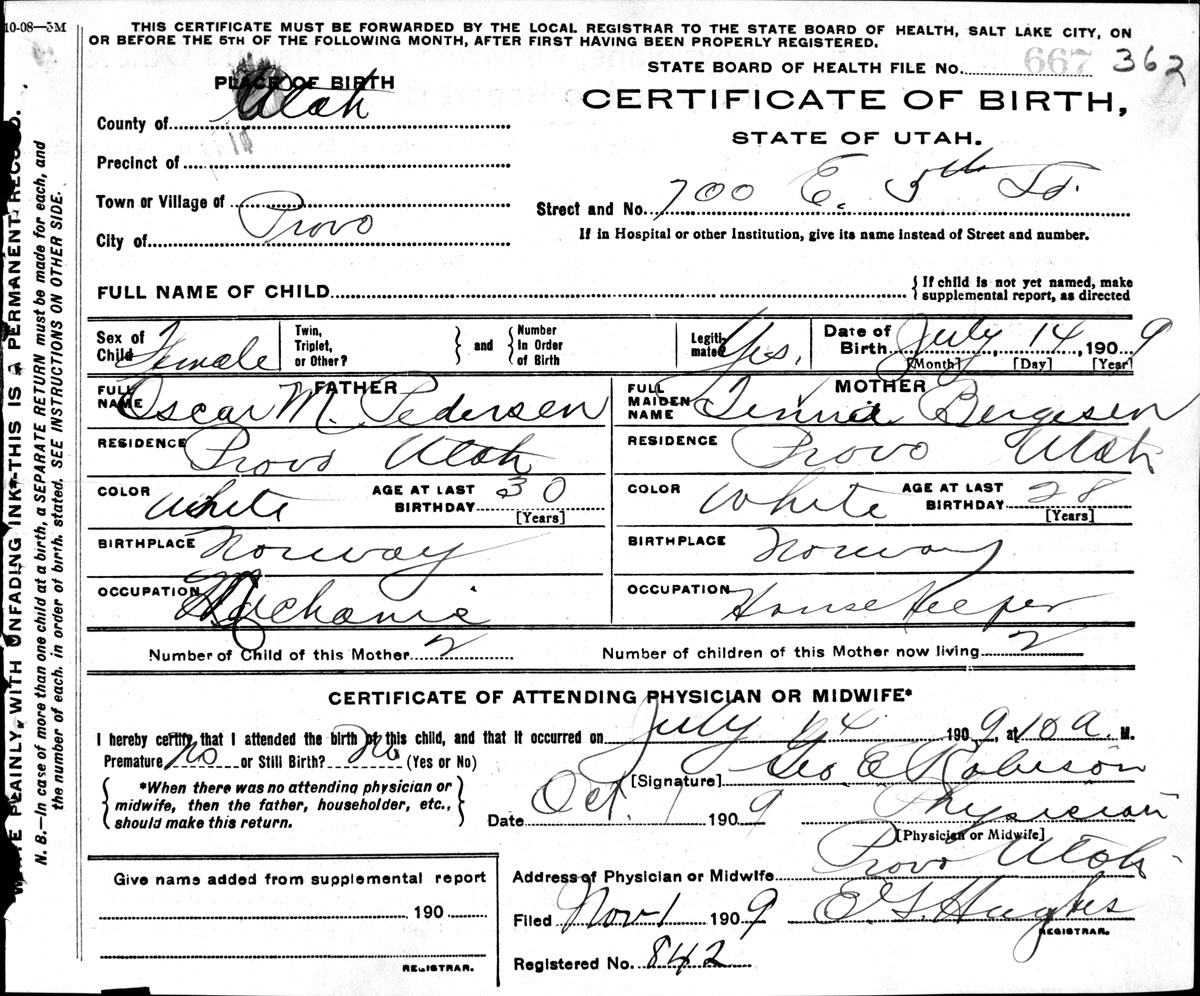 10-08—5M
THIS CERTIFICATE MUST BE FORWARDED BY THE LOCAL REGISTRAR TO THE STATE BOARD OF HEALTH, SALT LAKE CITY, ON
OR BEFORE THE 5TH OF THE FOLLOWING MONTH, AFTER FIRST HAVING BEEN PROPERLY REGISTERED.
STATE BOARD OF HEALTH FILE No. 667 362
PLACE OF BIRTH
CERTIFICATE OF BIRTH,
STATE OF UTAH.
County of Utah
Precinct of
Town or Village of
City of Provo
Street and No. 700 E. 5th
If in Hospital or other Institution, give its name instead of Street and number.
FULL NAME OF CHILD
{ If child is not yet named, make
supplemental report, as directed
Sex of Child Female
Twin, Triplet, or Other? } and { Number In Order of Birth
Legitimate Yes.
Date of Birth July 14, 1909
[Month] [Day] [Year]
FATHER
FULL NAME Oscar M. Pedersen
RESIDENCE Provo Utah
COLOR White AGE AT LAST BIRTHDAY 30
[Years]
BIRTHPLACE Norway
OCCUPATION Mechanic
MOTHER
FULL MAIDEN NAME Bergesen
RESIDENCE Provo Utah
COLOR White AGE AT LAST BIRTHDAY 28
[Years]
BIRTHPLACE Norway
OCCUPATION House Keeper
Number of Child of this Mother 2 Number of children of this Mother now living 2
CERTIFICATE OF ATTENDING PHYSICIAN OR MIDWIFE*
I hereby certify that I attended the birth of this child, and that it occurred on July 14 1909, at 10 a M.
Premature No or Still Birth? No (Yes or No)
*When there was no attending physician or
midwife, then the father, householder, etc.,
should make this return.
[Signature] Geo E Robison
Date Oct. 1 1909 Physician
[Physician or Midwife]
Address of Physician or Midwife Provo Utah
Filed Nov 1 1909 Hughes
REGISTRAR.
Registered No. 842
Give name added from supplemental report
190
REGISTRAR.
WRITE PLAINLY, WITH UNFADING INK—THIS IS A PERMANENT RECORD.
N. B.—In case of more than one child at a birth, a SEPARATE RETURN must be made for each, and
the number of each, in order of birth, stated. SEE INSTRUCTIONS ON OTHER SIDE.